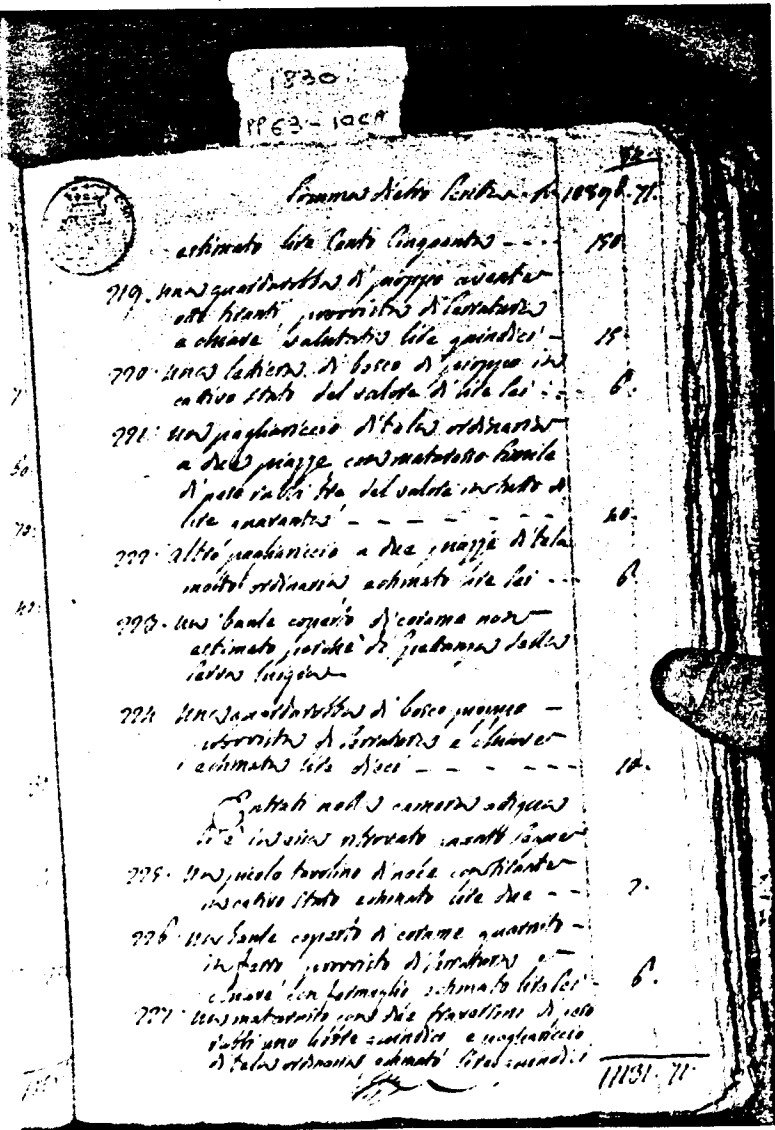 1830
PP 63-10CA
82.
Somma dietro scritta L. 10898. 71.
estimato lire Cento Cinquanta - - - - 150
219. Una guardarobba di pioppo avente
otto tiranti provvista di serratura
a chiave valutata lire quindici - 15.
220. Una lettiera di bosco di pioppo in
cativo stato del valore di lire sei - - - 6.
221. Un pagliariccio di tela ordinaria
a due piazze con materasso simile
di peso rubbi tre del valore in tutto di
lire quaranta - - - - - - 40.
222. Altro pagliariccio a due piazze di tela
molto ordinaria estimato lire sei - - - 6.
223. Un baule coperto di corame non
estimato perché di spettanza della
serva Luigia
224. Una guardarobba di bosco pioppo -
provvista di serratura e chiave
estimata lire dieci - - - - - 10.
Entrati nella camera attigua
si è in essa ritrovato quanto segue
225. Un piccolo tavolino di noce
in cativo stato estimato lire due - - 2.
226. Un baule coperto di corame guarnito -
in ferro provvisto di serratura e
chiave con fermaglio estimato lire sei - 6.
227. Un materasso con due traversini di peso
rubbi uno libbre quindici e pagliariccio
di tela ordinaria estimati lire quindici
11131. 71